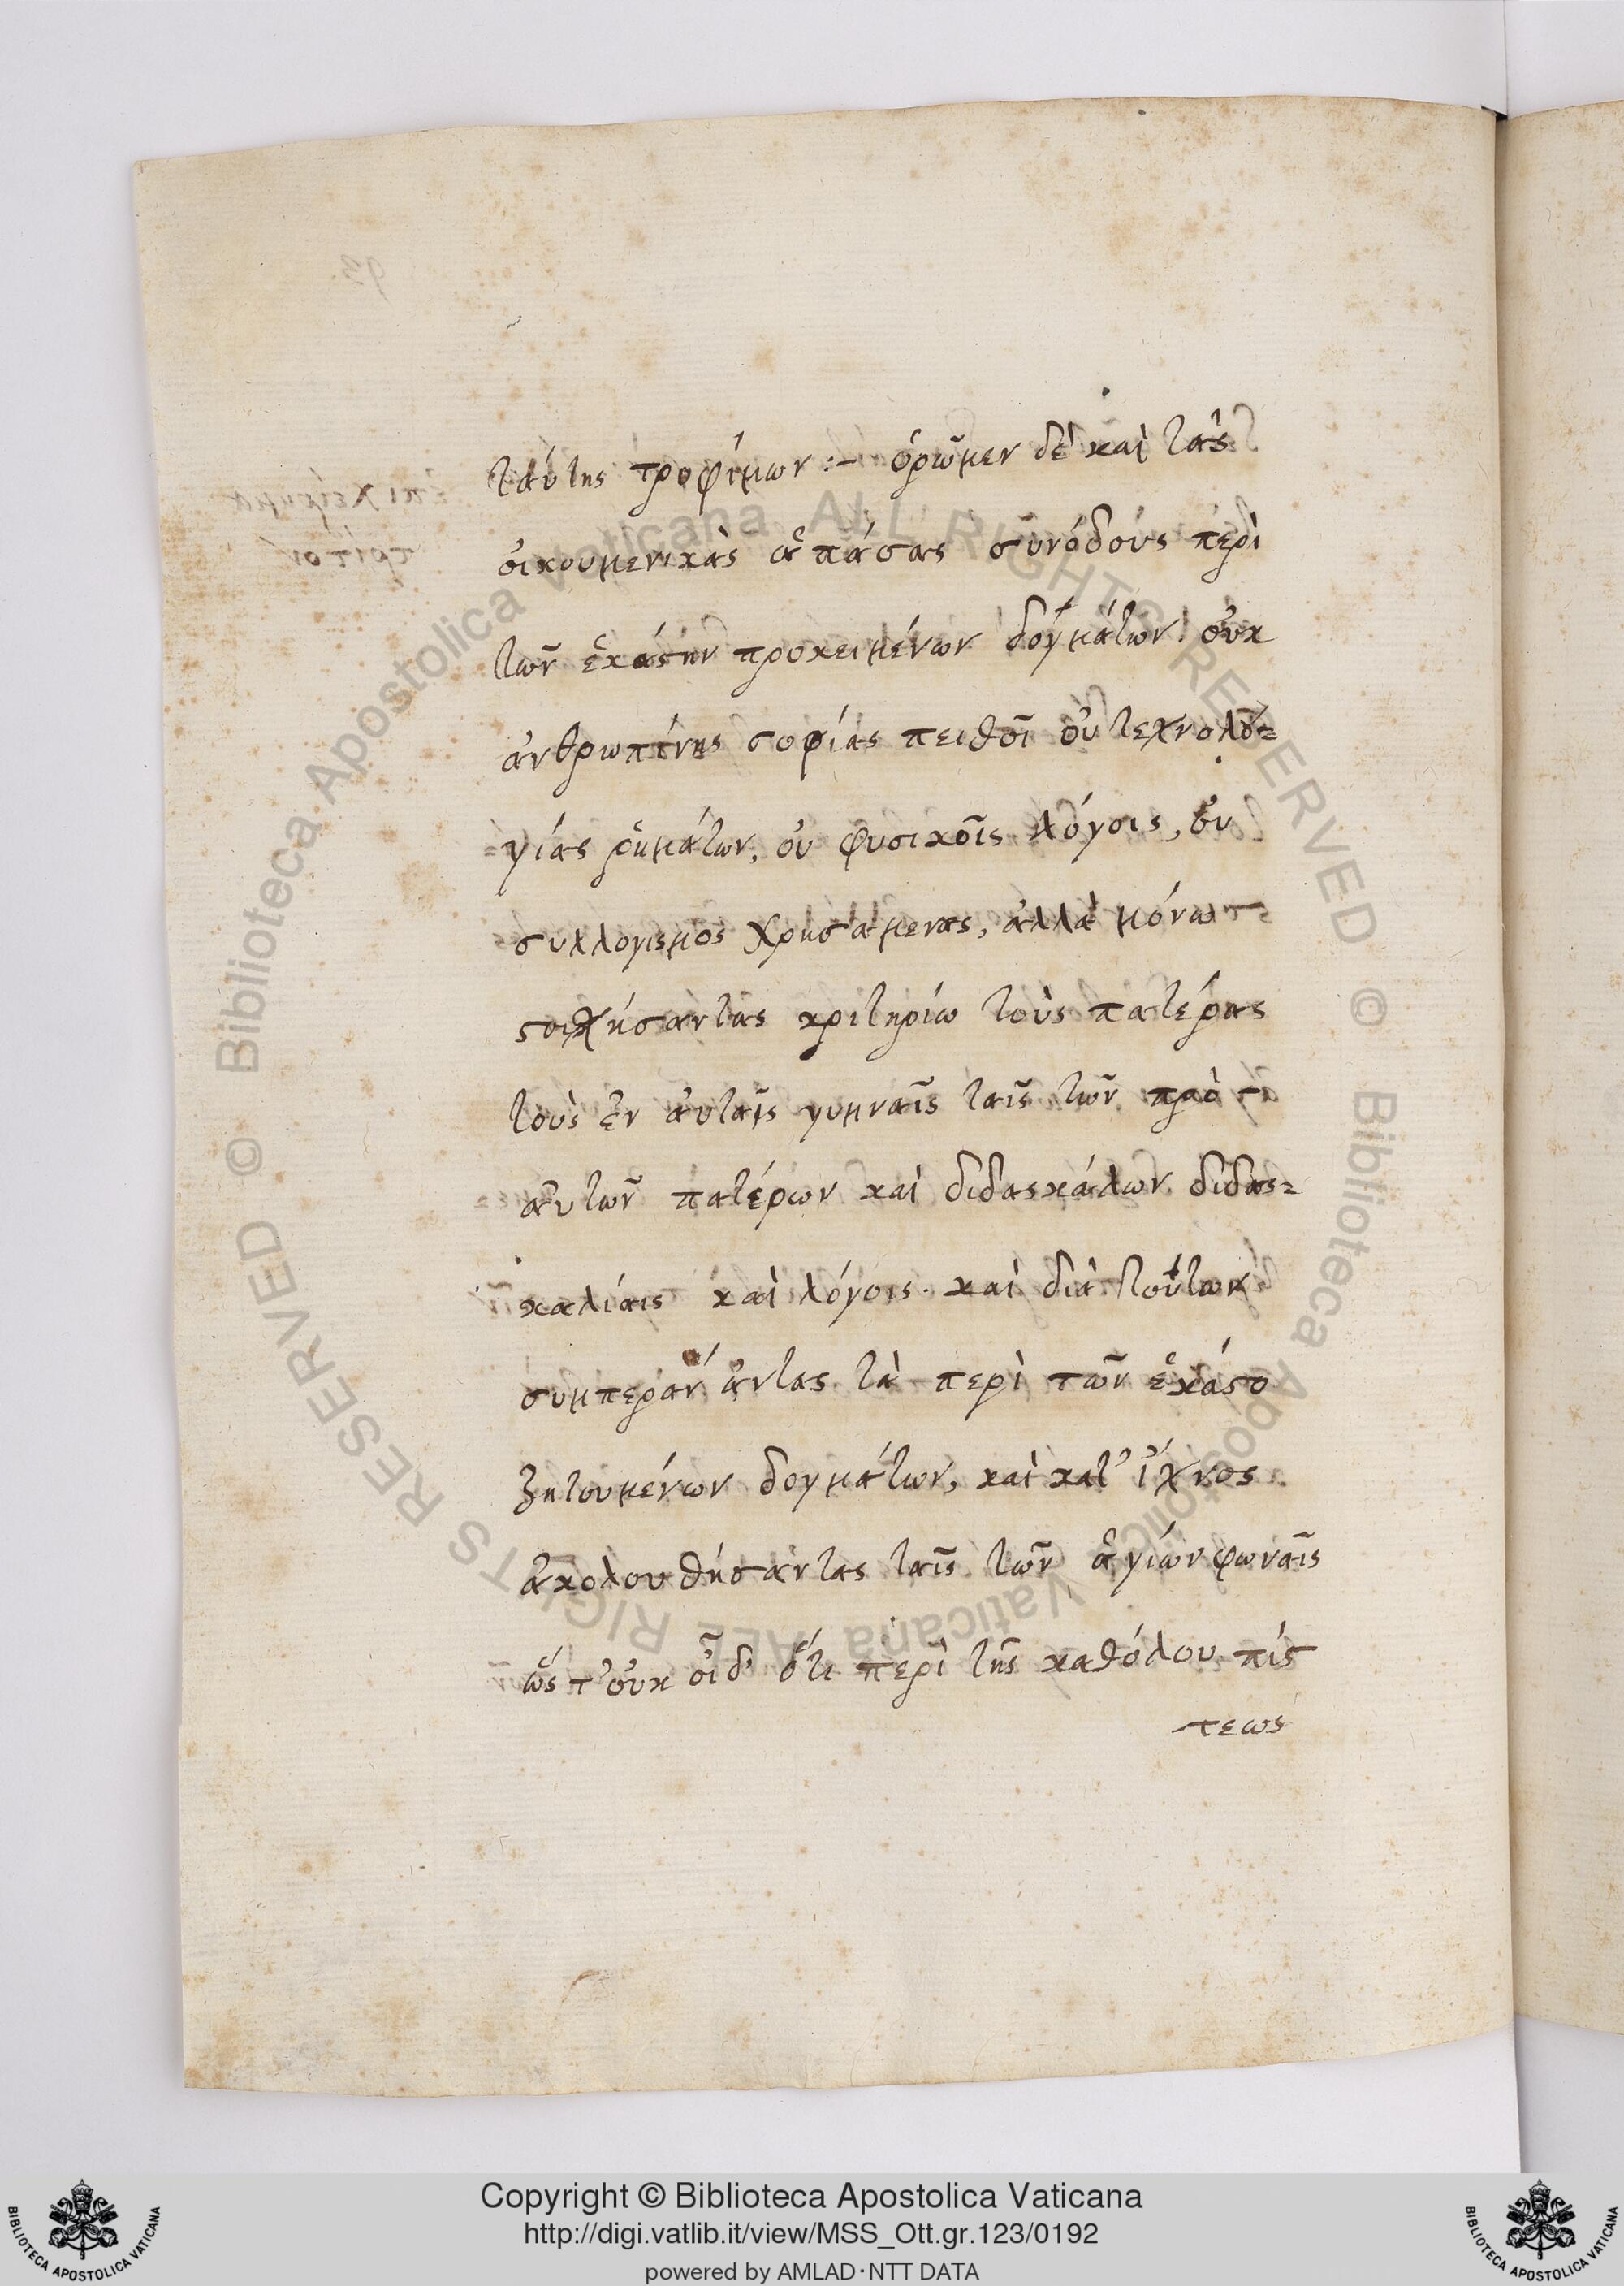 ταύτης τροφίμων :- ὁρῶμεν δὲ καὶ τὰς
οἰκουμενικὰς ἁπάσας συνόδους περὶ
τῶν ἑκάστην προκειμένων δογμάτων οὐκ
ἀνθρωπίνης σοφίας πειθοῖ οὐ τεχνολο=
γίας ῥημάτων, οὐ φυσικοῖς λόγοις, οὐ
συλλογισμος χρησάμενας, ἀλλὰ μόνω
στοιχήσαντας κριτηρίω τοὺς πατέρας
τοὺς ἐν αὐταῖς γυμναῖς ταῖς τῶν πρὸ
αὐτῶν πατέρων καὶ διδασκάλων διδασ=
καλίαις καὶ λόγοις. καὶ διὰ τούτων
συμπεραν άντας τὰ περὶ τῶν ἑκάστο
ζητουμένων δογμάτων, καὶ κατ' ἴχνος
ἀκολουθήσαντας ταῖς τῶν ἁγίων φωναῖς
ὥστ' οὐκ οἶδ' ὅτι περὶ τῆς καθόλου πίσ
τεως
Copyright © Biblioteca Apostolica Vaticana
http://digi.vatlib.it/view/MSS_Ott.gr.123/0192
powered by AMLAD·NTT DATA
BIBLIOTECA APOSTOLICA VATICANA
BIBLIOTECA APOSTOLICA VATICANA
© Biblioteca Apostolica Vaticana ALL RIGHTS RESERVED © Biblioteca Apostolica Vaticana ALL RIGHTS RESERVED